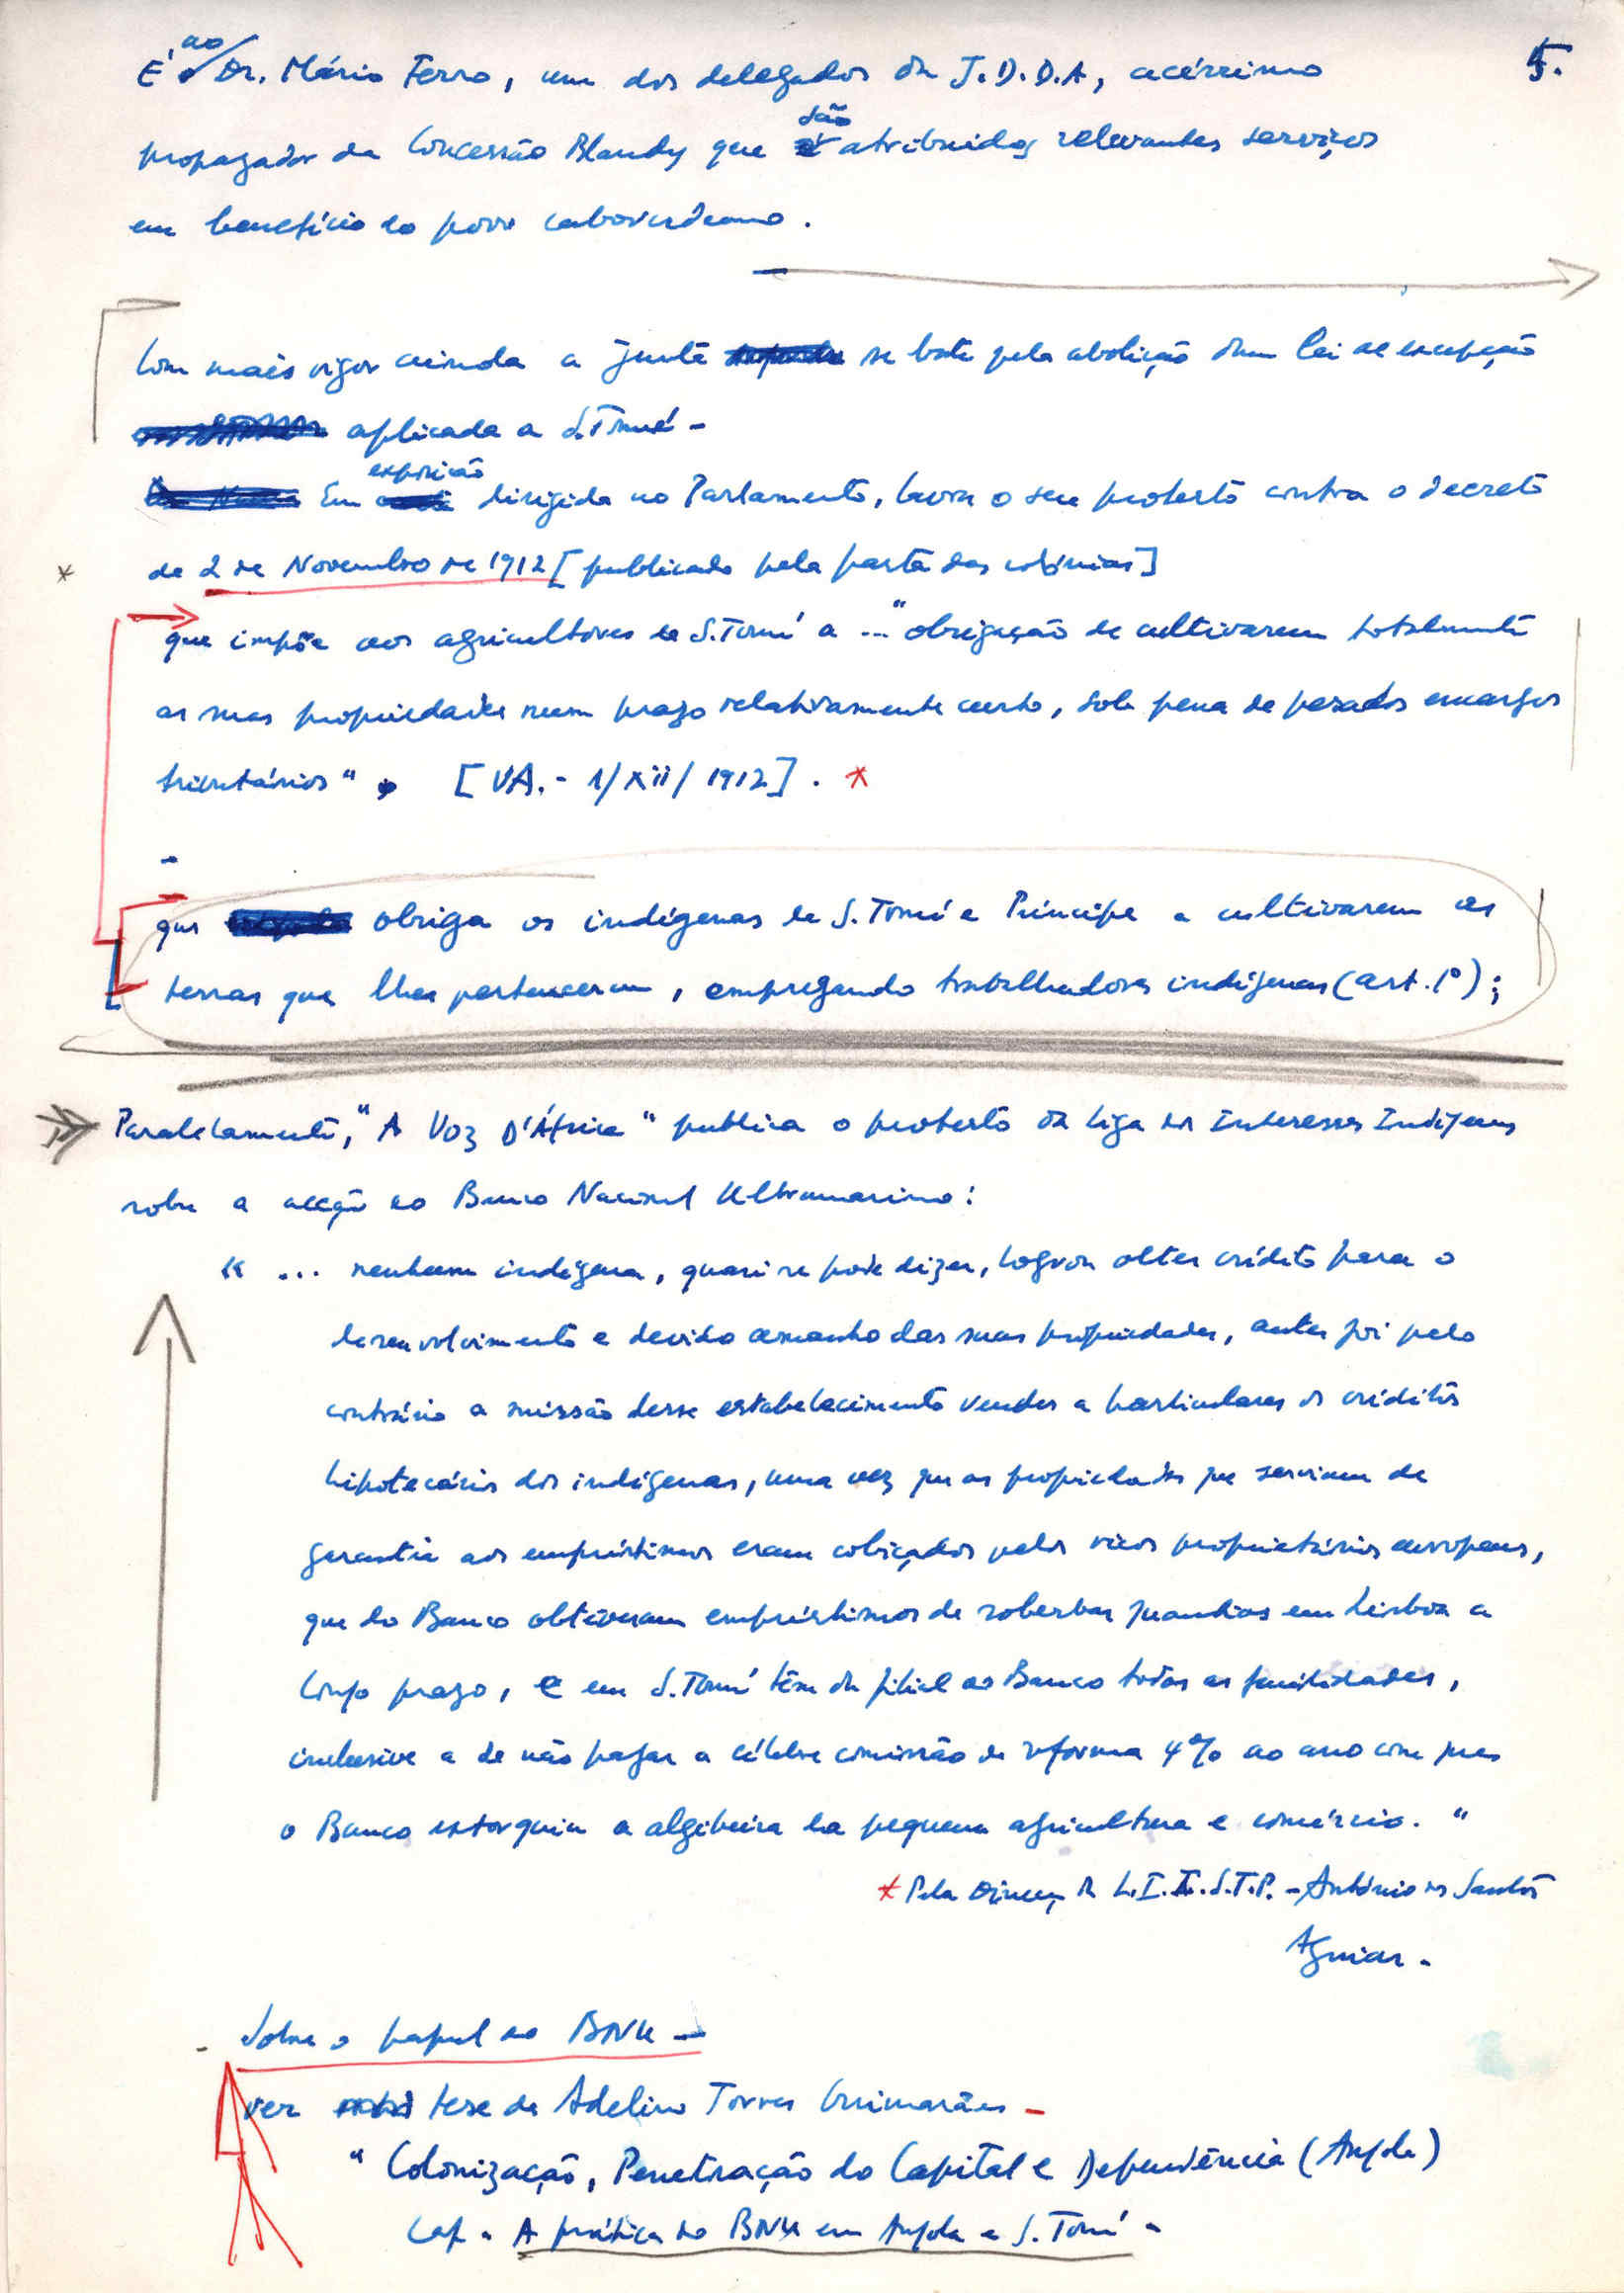 5.
É ao Dr. Mário Ferro, um dos delegados da J.D.D.A, acérrimo
propagador da Concessão Blandy que são atribuidos relevantes serviços
em benefício do povo caboverdeano.
Com mais vigor ainda a Junta se bate pela abolição duma lei de excepção
aplicada a S.Tomé -
Em exposição dirigida ao Parlamento, lavra o seu protesto contra o decreto
* de 2 de Novembro de 1912 [publicado pela pasta das colónias]
que impõe aos agricultores de S.Tomé a ... "obrigação de cultivarem totalmente
as suas propriedades num prazo relativamente curto, sob pena de pesados encargos
tributários" [VA. - 1/XII/1912]. *
que obriga os indígenas de S. Tomé e Príncipe a cultivarem as
terras que lhes pertencerem, empregando trabalhadores indígenas (art. 1º);
Paralelamente, "A Voz D'África" publica o protesto da Liga dos Interesses Indígenas
sobre a acção do Banco Nacional Ultramarino:
" ... nenhum indígena, quasi se pode dizer, logrou obter crédito para o
desenvolvimento e devido amanho das suas propriedades, antes foi pelo
contrário a missão desse estabelecimento vender a particulares os créditos
hipotecários dos indígenas, uma vez que as propriedades que serviam de
garantia aos empréstimos eram cobiçados pelos ricos proprietários europeus,
que do Banco obtiveram empréstimos de soberbas quantias em Lisboa a
longo prazo, e em S.Tomé têm da filial do Banco todas as facilidades,
inclusive a de não pagar a célebre comissão de reforma 4% ao ano com que
o Banco extorquia a algibeira da pequena agricultura e comércio. "
* Pela Direcção da L.I.I.S.T.P. - António dos Santos
Aguiar -
- Sobre o papel do BNU -
ver tese de Adelino Torres Guimarães -
" Colonização, Penetração do Capital e Dependência (Angola)
Cap - A prática do BNU em Angola e S. Tomé -